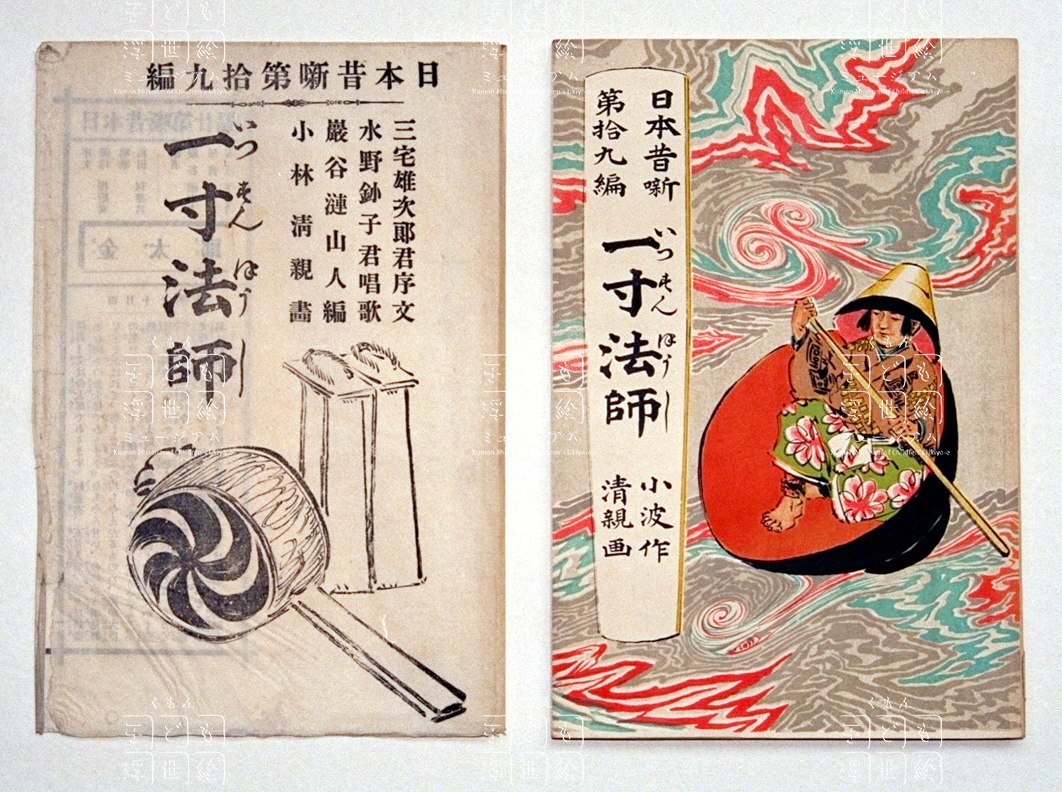 日本昔噺第拾九編
三宅雄次郎君序文
水野鈔子君唱歌
巖谷漣山人編
小林清親畵
一寸法師
いつすんぼうし
日本昔噺
第拾九編
一寸法師
いつすんぼうし
小波作
清親画
くもん
子ども
浮世絵
ミュージアム
Kumon Museum of Children's Ukiyo-e